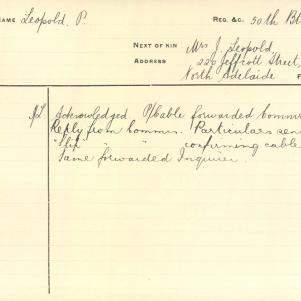 NAME Leopold, P. REG. &C. 50th Bt
NEXT OF KIN Mrs J. Leopold
ADDRESS 226 Jeffcott Street,
North Adelaide F
Acknowledged P/Cable forwarded Commr
Reply from Commr. Particulars sen
"Slip" " " confirming cable
Same forwarded Inquirer.